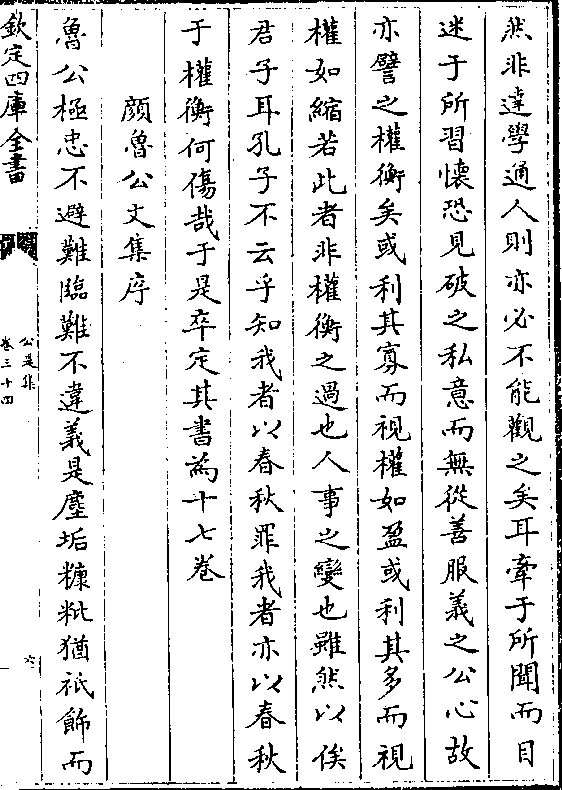 然非達學通人則亦必不能觀之矣耳牽于所聞而目
迷于所習懷恐見破之私意而無從善服義之公心故
亦譬之權衡矣或利其寡而視權如盈或利其多而視
權如縮若此者非權衡之過也人事之變也雖然以俟
君子耳孔子不云乎知我者以春秋罪我者亦以春秋
于權衡何傷哉于是卒定其書為十七卷
顔魯公文集序
魯公極忠不避難臨難不違義是塵垢糠粃猶祇飾而
欽定四庫全書
公是集
卷三十四
六